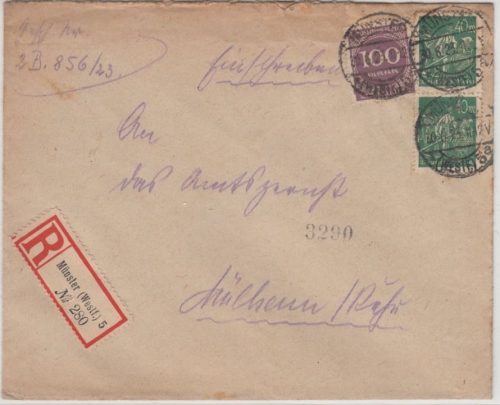 2 B. 856/23.
Einschreiben
100
40
40
An
das Amtsgericht
3290
Mülheim /Ruhr
R
Münster (Westf.) 5
№ 280